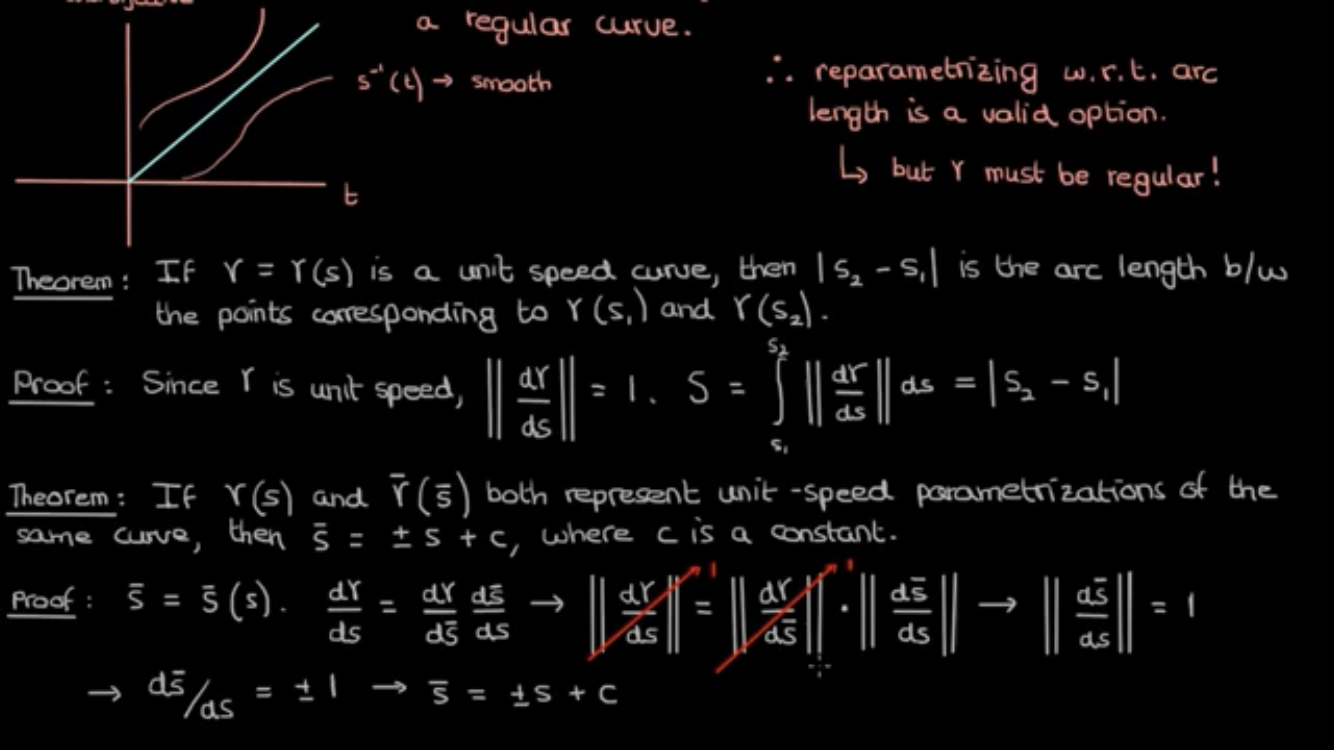 a regular curve.
s⁻¹(t) → smooth
t
∴ reparametrizing w.r.t. arc
length is a valid option.
↳ but r must be regular!
Theorem: If r = r(s) is a unit speed curve, then |s₂ - s₁| is the arc length b/w
the points corresponding to r(s₁) and r(s₂).
Proof: Since r is unit speed, ||dr/ds|| = 1. S = ∫_{s₁}^{s₂} ||dr/ds|| ds = |s₂ - s₁|
Theorem: If r(s) and r̄(s̄) both represent unit-speed parametrizations of the
same curve, then s̄ = ± s + c, where c is a constant.
Proof: s̄ = s̄(s). dr/ds = dr/ds̄ ds̄/ds → ||dr/ds|| 1 = ||dr/ds̄|| 1 · ||ds̄/ds|| → ||ds̄/ds|| = 1
→ ds̄/ds = ± 1 → s̄ = ±s + c